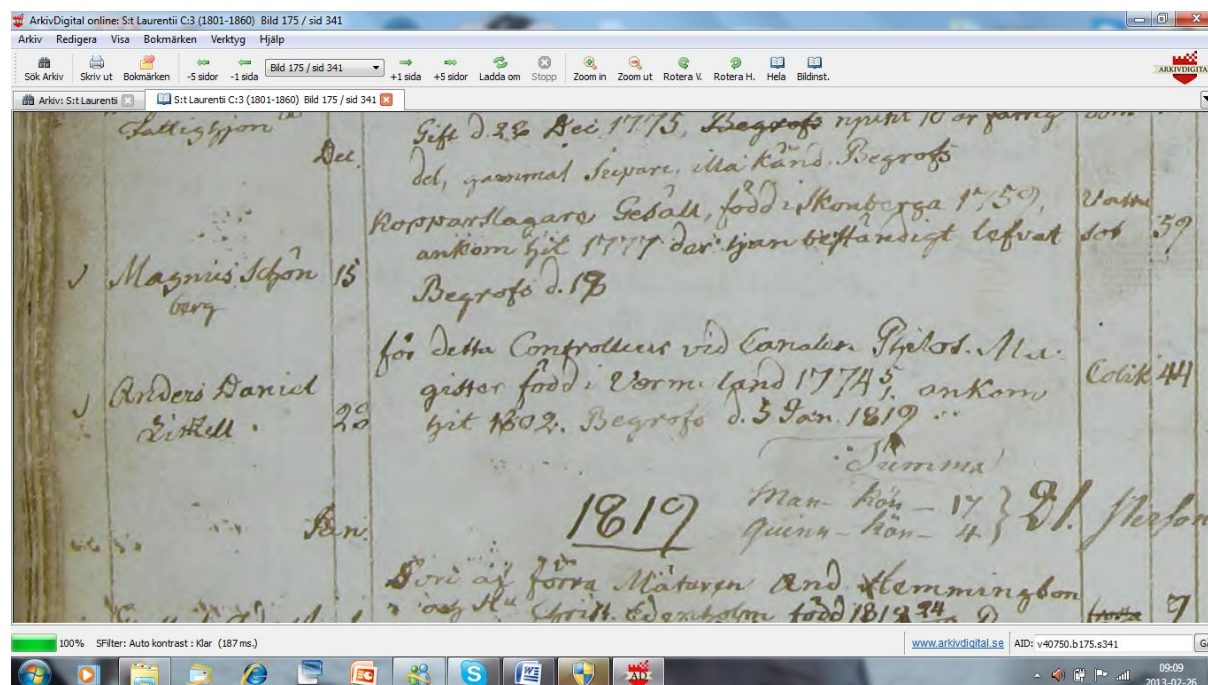 ArkivDigital online: S:t Laurentii C:3 (1801-1860) Bild 175 / sid 341
Arkiv Redigera Visa Bokmärken Verktyg Hjälp
Sök Arkiv Skriv ut Bokmärken -5 sidor -1 sida Bild 175 / sid 341 +1 sida +5 sidor Ladda om Stopp Zoom in Zoom ut Rotera V. Rotera H. Hela Bildinst.
ARKIVDIGITA
Arkiv: S:t Laurentii S:t Laurentii C:3 (1801-1860) Bild 175 / sid 341
Fattighjon Gift d. 28 Dec. 1775, Begrofs 10 år
Dec. del, gammal, illa känd. Begrofs
Kopparslagare Gesäll, född i Skönberga 1759, Vattu
ankom hit 1777 der han beständigt lefvat sot 59
Magnus Schön 15
berg Begrofs d. 18
för detta Controlleur vid Canalen Philos. Ma-
Anders Daniel gister född i Vermeland 1774 5, ankom Colik 44
28 hit 1802. Begrofs d. 5 Jan. 1819
Summa
1819 Man-kön - 17 } 21. Person
Jan. Quinn-kön - 4
förra Mätaren And Hemmingson
och Hu Christ. Edenholm född 1819 24
100% SFilter: Auto kontrast : Klar (187 ms.) www.arkivdigital.se AID: v40750.b175.s341 G
09:09
2013-02-26